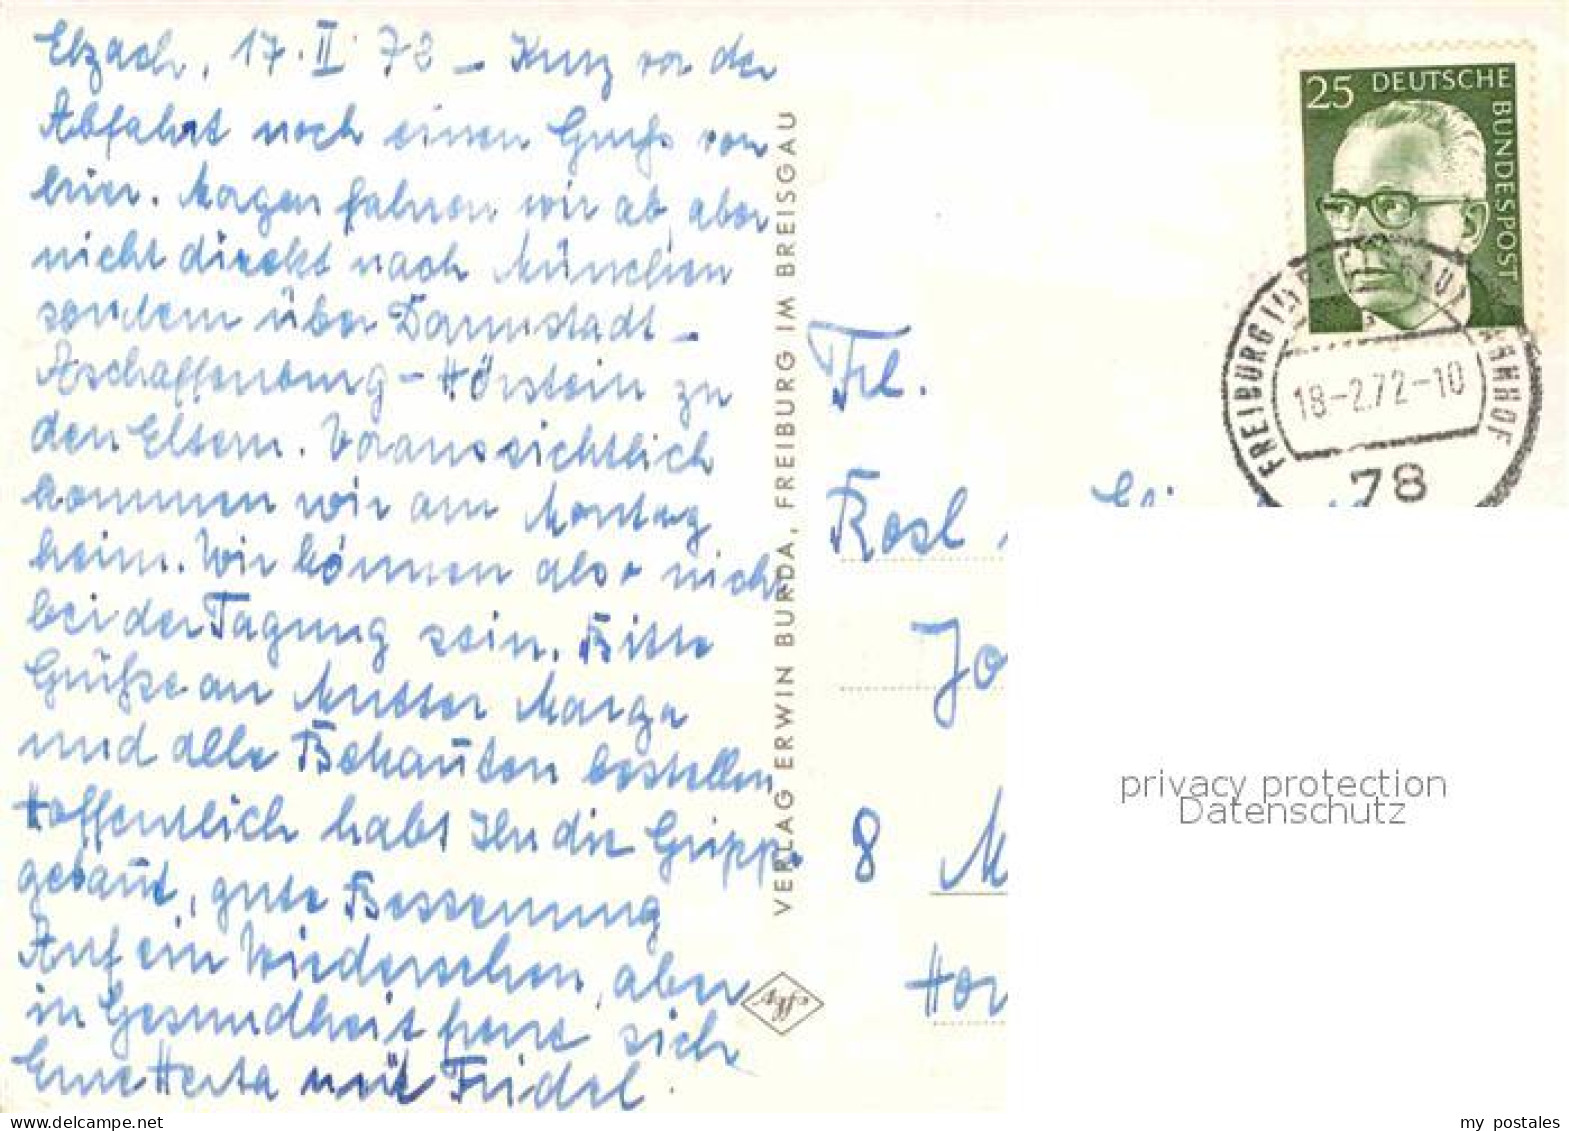 Elzach, 17. II. 72 – Kurz vor der
Abfahrt noch einen Gruß von
hier. Morgen fahren wir ab, aber
nicht direkt nach München
sondern über Darmstadt –
Aschaffenburg – Hörstein zu
den Eltern. Voraussichtlich
kommen wir am Montag
heim. Wir können also nicht
bei der Tagung sein. Bitte
Grüße an Mutter Marga
und alle Bekannten bestellen
Hoffentlich habt Ihr die Grippe
gebannt, gute Besserung
Auf ein Wiedersehen, aber
in Gesundheit freut sich
Eure Herta mit Friedel.
VERLAG ERWIN BURDA, FREIBURG IM BREISGAU
25 DEUTSCHE BUNDESPOST
FREIBURG IM BREISGAU BAHNHOF
18-2.72-10
78
Frl.
Rosl
Jo
8 M
Hor
privacy protection
Datenschutz
delcampe.net
my_postales